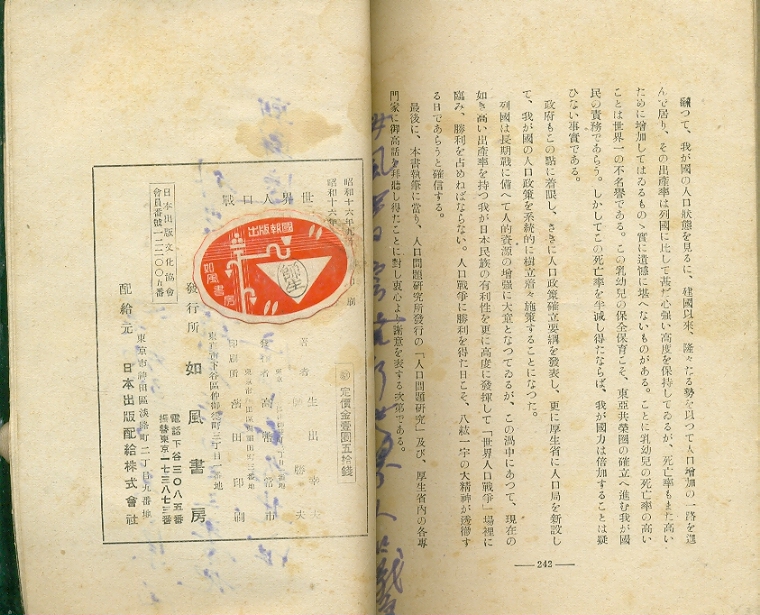 飜つて、我が國の人口狀態を見るに、建國以來、隆々たる勢を以つて人口增加の一路を進
んで居り、その出產率は列國に比して甚だ心强い高度を保持してゐるが、死亡率もまた高い
ために增加してはゐるものゝ實に遺憾に堪へないものがある。ことに乳幼兒の死亡率の高い
ことは世界一の不名譽である。この乳幼兒の保全保育こそ、東亞共榮圈の確立へ進む我が國
民の責務であらう。しかしてこの死亡率を半減し得たならば、我が國力は倍加することは疑
ひない事實である。
政府もこの點に着眼し、さきに人口政策確立要綱を發表し、更に厚生省に人口局を新設し
て、我が國の人口政策を系統的に樹立着々施策することになつた。
列國は長期戰に備へて人的資源の增强に大童となつてゐるが、この渦中にあつて、現在の
如き高い出產率を持つ我が日本民族の有利性を更に高度に發揮して「世界人口戰爭」場裡に
臨み、勝利を占めねばならない。人口戰爭に勝利を得た日こそ、八紘一宇の大精神が透徹す
る日であらうと確信する。
最後に、本書執筆に當り、人口問題硏究所發行の「人口問題硏究」及び、厚生省內の各專
門家に御高話を拜聽し得たことに對し衷心より謝意を表する次第である。
242
昭和十六年九
昭和十六年
世界人口戰
日本出版文化協會
會員番號一二二〇〇五番
出版報國
如風書房
㊞定價金壹圓五拾錢
著者 生出
高
常市
印刷所 濱田印刷
東京市下谷區仲御徒町三丁目
發行所 如風書房
電話下谷三〇八五番
振替東京一七三八七三番
東京市神田區淡路町二丁目九番地
配給元 日本出版配給株式會社